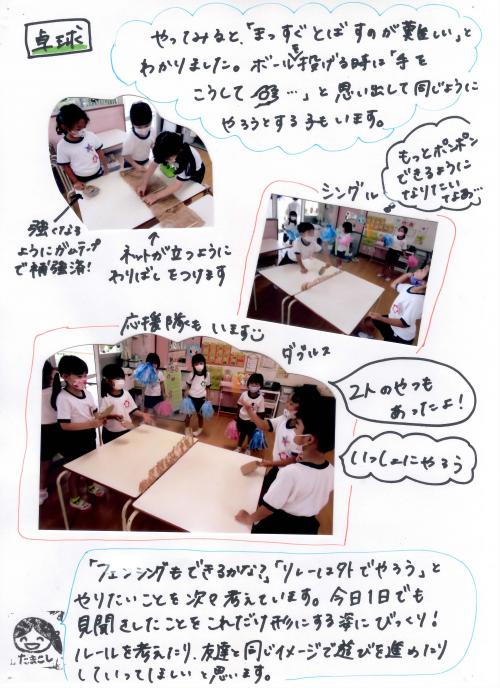 卓球
やってみると、「まっすぐとばすのが難しい」と
わかりました。ボールを投げる時は「手を
こうして…」と思い出して同じように
やろうとする子もいます。
もっとポンポン
できるように
なりたい
なあ…
シングル
強くなる
ようにガムテープ
で補強済!
ネットが立つように
わりばしをつけます
応援隊もいます
ダブルス
2人のやつも
あったよ!
いっしょにやろう
「フェンシングもできるかな?」「リレーは外でやろう」と
やりたいことを次々考えています。今日1日でも
見聞きしたことをこれだけ形にする姿にびっくり!
ルールを考えたり、友達と同じイメージで遊びを進めたり
していってほしいと思います。
たまこし